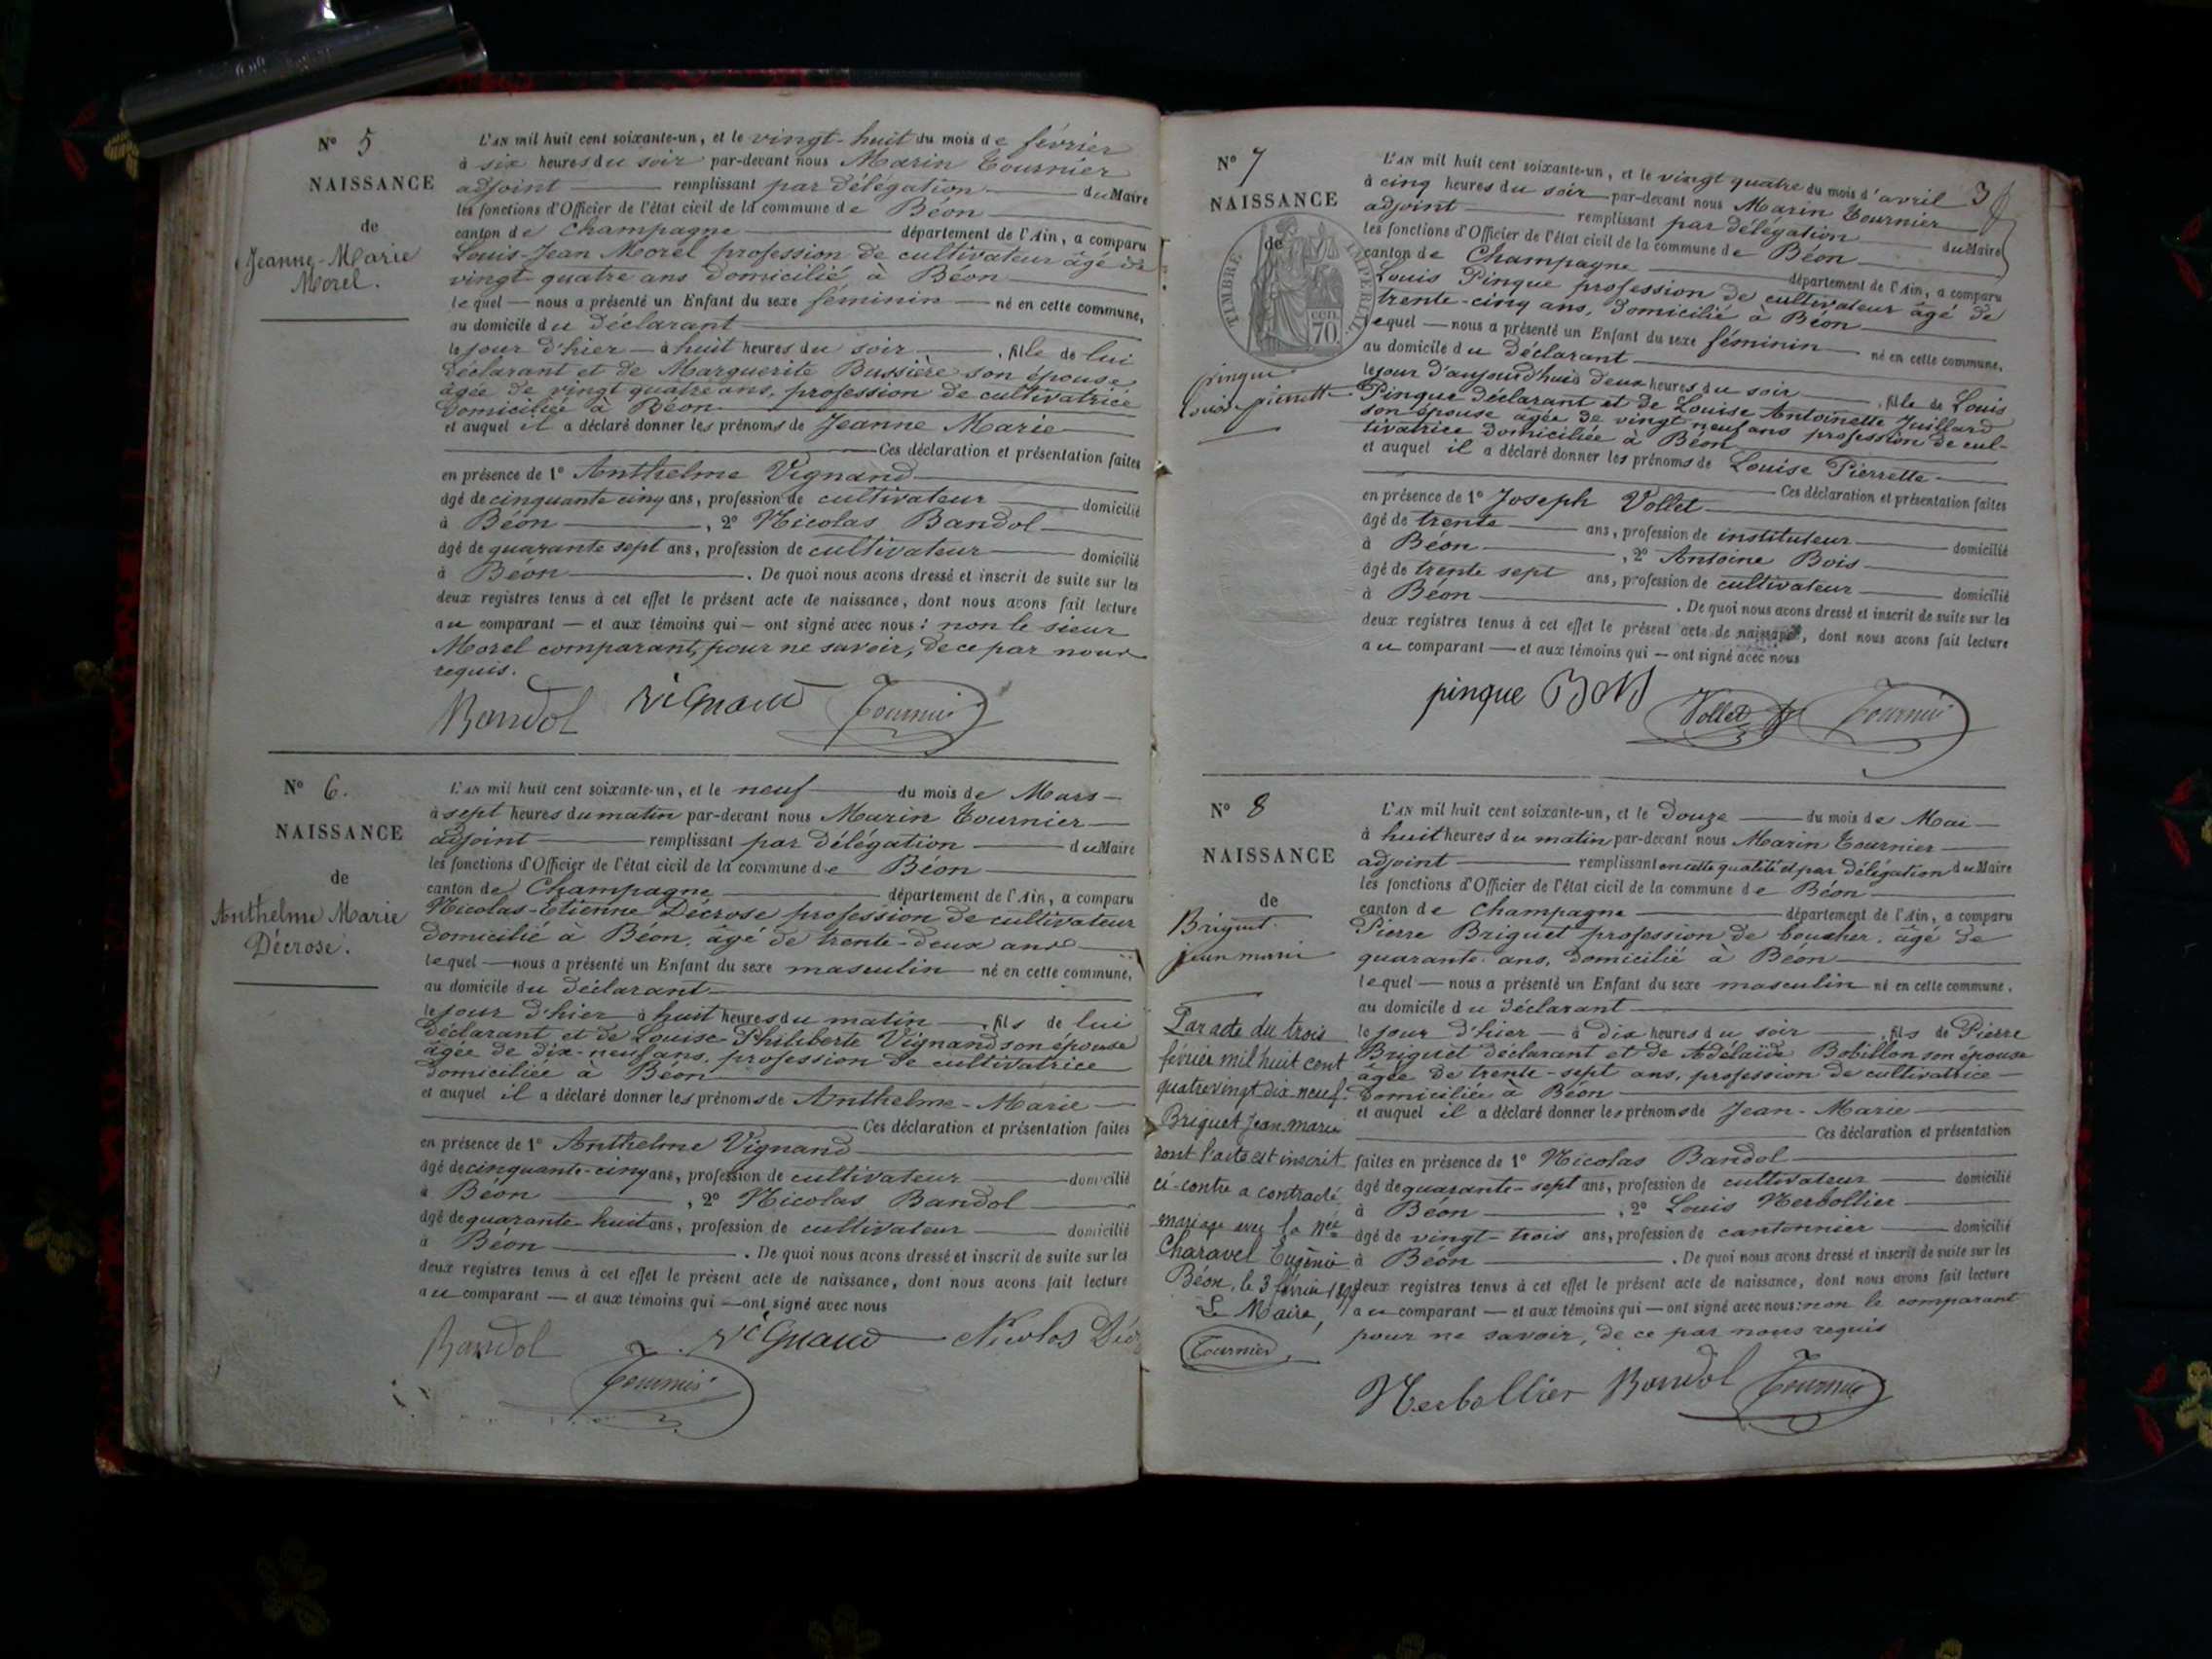 N° 5
NAISSANCE
de
Jeanne-Marie
Morel.
L'AN mil huit cent soixante-un, et le vingt-huit du mois de février
à six heures du soir par-devant nous Marin Tournier
adjoint remplissant par délégation du Maire
les fonctions d'Officier de l'état civil de la commune de Béon
canton de Champagne département de l'Ain, a comparu
Louis-Jean Morel profession de cultivateur âgé de
vingt-quatre ans domicilié à Béon
lequel nous a présenté un Enfant du sexe féminin né en cette commune,
au domicile du déclarant
le jour d'hier à huit heures du soir, fille de lui
déclarant et de Marguerite Bussière son épouse
âgée de vingt quatre ans, profession de cultivatrice
domiciliée à Béon
et auquel il a déclaré donner les prénoms de Jeanne Marie
Ces déclaration et présentation faites
en présence de 1° Anthelme Vignand
âgé de cinquante cinq ans, profession de cultivateur domicilié
à Béon, 2° Nicolas Bandol
âgé de quarante sept ans, profession de cultivateur domicilié
à Béon. De quoi nous avons dressé et inscrit de suite sur les
deux registres tenus à cet effet le présent acte de naissance, dont nous avons fait lecture
au comparant et aux témoins qui ont signé avec nous: non le sieur
Morel comparant, pour ne savoir, de ce par nous
requis.
Bandol Vignaud Tournier
N° 6.
NAISSANCE
de
Anthelme Marie
Décrose.
L'AN mil huit cent soixante-un, et le neuf du mois de Mars
à sept heures du matin par-devant nous Marin Tournier
adjoint remplissant par délégation du Maire
les fonctions d'Officier de l'état civil de la commune de Béon
canton de Champagne département de l'Ain, a comparu
Nicolas-Etienne Décrose profession de cultivateur
domicilié à Béon, âgé de trente-deux ans
lequel nous a présenté un Enfant du sexe masculin né en cette commune,
au domicile du déclarant
le jour d'hier à huit heures du matin, fils de lui
déclarant et de Louise Philiberte Vignand son épouse
âgée de dix-neuf ans, profession de cultivatrice
domiciliée à Béon
et auquel il a déclaré donner les prénoms de Anthelme-Marie
Ces déclaration et présentation faites
en présence de 1° Anthelme Vignand
âgé de cinquante-cinq ans, profession de cultivateur domicilié
à Béon, 2° Nicolas Bandol
âgé de quarante huit ans, profession de cultivateur domicilié
à Béon. De quoi nous avons dressé et inscrit de suite sur les
deux registres tenus à cet effet le présent acte de naissance, dont nous avons fait lecture
au comparant et aux témoins qui ont signé avec nous
Bandol Vignaud Nicolas Déc
Tournier
3
N° 7
NAISSANCE
de
TIMBRE IMPERIAL
CEN. 70.
pinque
Louise pierrett
L'AN mil huit cent soixante-un, et le vingt quatre du mois d'avril
à cinq heures du soir par-devant nous Marin Tournier
adjoint remplissant par délégation du Maire
les fonctions d'Officier de l'état civil de la commune de Béon
canton de Champagne département de l'Ain, a comparu
Louis Pinque profession de cultivateur âgé de
trente-cinq ans, domicilié à Béon
lequel nous a présenté un Enfant du sexe féminin né en cette commune,
au domicile du déclarant
le jour d'aujourd'hui à deux heures du soir, fille de Louis
Pinque déclarant et de Louise Antoinette Juillard
son épouse âgée de vingt neuf ans profession de cul-
tivatrice domiciliée à Béon
et auquel il a déclaré donner les prénoms de Louise Pierrette
Ces déclaration et présentation faites
en présence de 1° Joseph Vollet
âgé de trente ans, profession de instituteur domicilié
à Béon, 2° Antoine Bois
âgé de trente sept ans, profession de cultivateur domicilié
à Béon. De quoi nous avons dressé et inscrit de suite sur les
deux registres tenus à cet effet le présent acte de naissance, dont nous avons fait lecture
au comparant et aux témoins qui ont signé avec nous
pinque Bois Vollet Tournier
N° 8
NAISSANCE
de
Briguet
jean marie
Par acte du trois
février mil huit cent
quatre vingt dix-neuf
Briguet Jean-Marie
dont l'acte est inscrit
ci-contre a contracté
mariage avec la née
Charavel Eugénie
Béon, le 3 février 1899
Le Maire,
Tournier
L'AN mil huit cent soixante-un, et le Douze du mois de Mai
à huit heures du matin par-devant nous Marin Tournier
adjoint remplissant en cette qualité et par délégation du Maire
les fonctions d'Officier de l'état civil de la commune de Béon
canton de Champagne département de l'Ain, a comparu
Pierre Briguet profession de boucher, âgé de
quarante ans, domicilié à Béon
lequel nous a présenté un Enfant du sexe masculin né en cette commune,
au domicile du déclarant
le jour d'hier à dix heures du soir, fils de Pierre
Briguet déclarant et de Adélaïde Bobillon son épouse
âgée de trente-sept ans, profession de cultivatrice
domiciliée à Béon
et auquel il a déclaré donner les prénoms de Jean-Marie
Ces déclaration et présentation
faites en présence de 1° Nicolas Bandol
âgé de quarante-sept ans, profession de cultivateur domicilié
à Béon, 2° Louis Nerbollier
âgé de vingt-trois ans, profession de cantonnier domicilié
à Béon. De quoi nous avons dressé et inscrit de suite sur les
deux registres tenus à cet effet le présent acte de naissance, dont nous avons fait lecture
au comparant et aux témoins qui ont signé avec nous: non le comparant
pour ne savoir, de ce par nous requis
Nerbollier Bandol Tournier